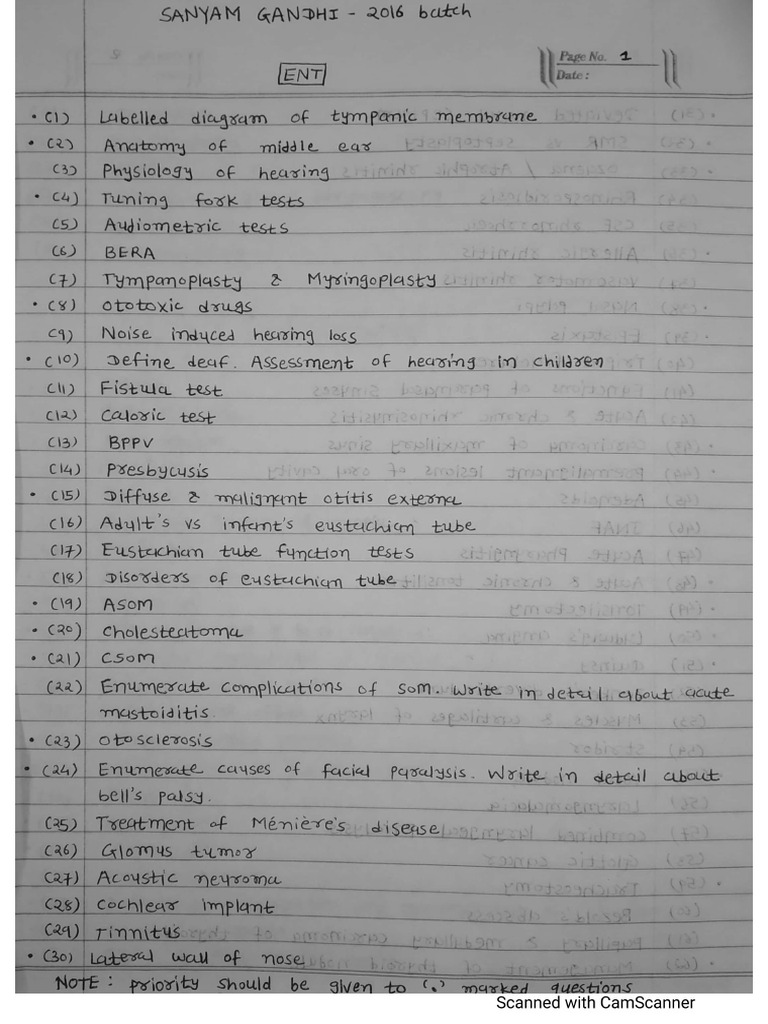 SANYAM GANDHI - 2016 batch
Page No. 1
ENT
Date:
• (1) Labelled diagram of tympanic membrane
• (2) Anatomy of middle ear
(3) Physiology of hearing
• (4) Tuning fork tests
(5) Audiometric tests
(6) BERA
(7) Tympanoplasty & Myringoplasty
• (8) Ototoxic drugs
(9) Noise induced hearing loss
• (10) Define deaf. Assessment of hearing in children
(11) Fistula test
(12) Caloric test
(13) BPPV
(14) Presbycusis
• (15) Diffuse & malignant otitis externa
(16) Adult's vs infant's eustachian tube
(17) Eustachian tube function tests
(18) Disorders of eustachian tube
• (19) ASOM
• (20) Cholesteatoma
• (21) CSOM
(22) Enumerate complications of SOM. Write in detail about acute
mastoiditis.
• (23) Otosclerosis
• (24) Enumerate causes of facial paralysis. Write in detail about
bell's palsy.
(25) Treatment of Ménière's disease
(26) Glomus tumor
(27) Acoustic neuroma
(28) Cochlear implant
(29) Tinnitus
• (30) Lateral wall of nose
NOTE: priority should be given to (•) marked questions
Scanned with CamScanner